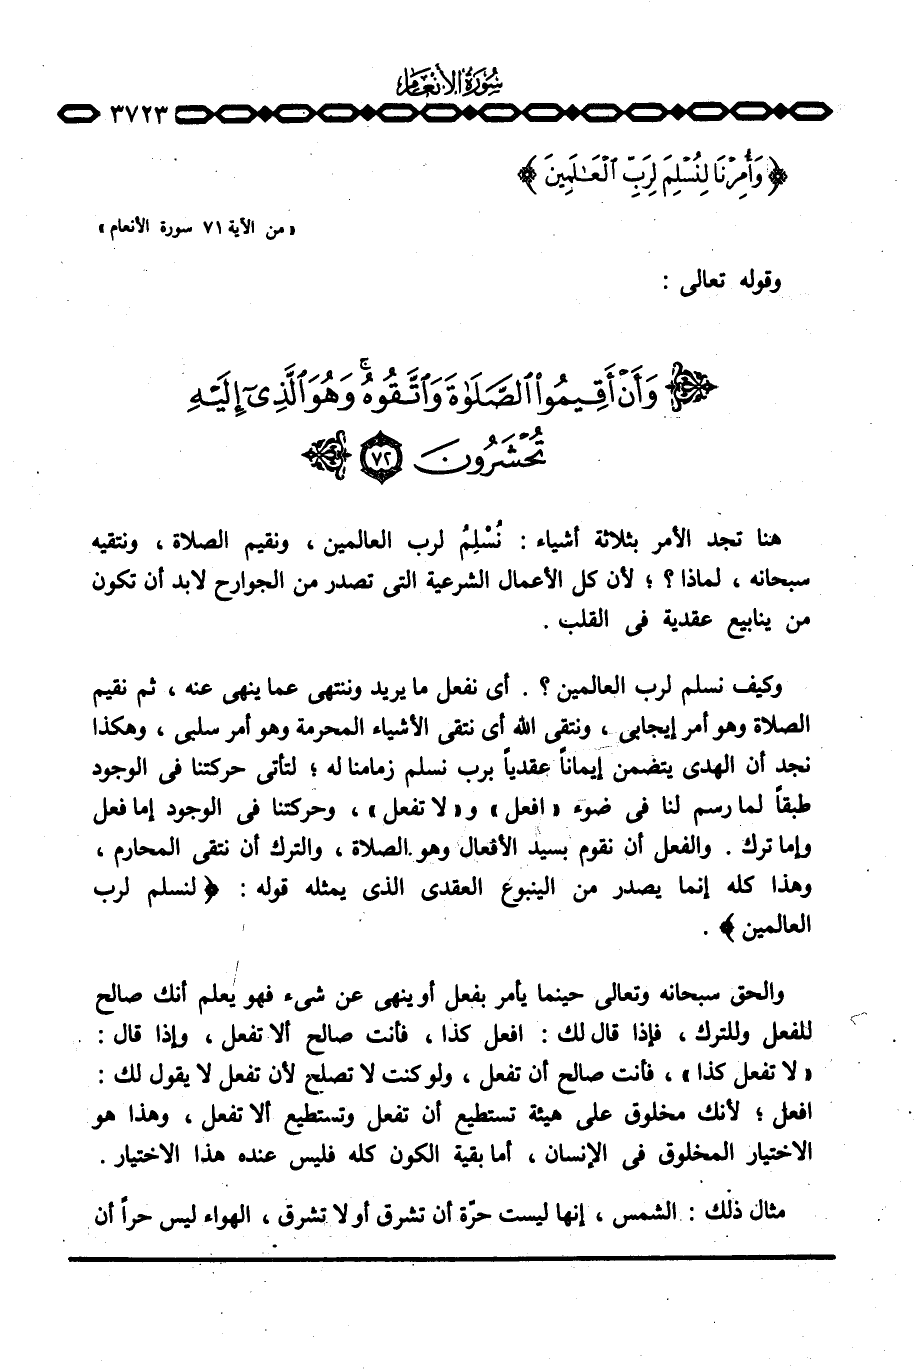 سورة الأنعام
٣٧٢٣
﴿ وَأُمِرْنَا لِنُسْلِمَ لِرَبِّ الْعَٰلَمِينَ ﴾
« من الآية ٧١ سورة الأنعام »
وقوله تعالى :
وَأَنْ أَقِيمُوا الصَّلَوٰةَ وَاتَّقُوهُ ۚ وَهُوَ الَّذِىٓ إِلَيْهِ
تُحْشَرُونَ ٧٢
هنا تجد الأمر بثلاثة أشياء : نُسْلِمُ لرب العالمين ، ونقيم الصلاة ، ونتقيه
سبحانه ، لماذا ؟ ؛ لأن كل الأعمال الشرعية التى تصدر من الجوارح لابد أن تكون
من ينابيع عقدية فى القلب .
وكيف نسلم لرب العالمين ؟ . أى نفعل ما يريد وننتهى عما ينهى عنه ، ثم نقيم
الصلاة وهو أمر إيجابى ، ونتقى الله أى نتقى الأشياء المحرمة وهو أمر سلبى ، وهكذا
نجد أن الهدى يتضمن إيماناً عقدياً برب نسلم زمامنا له ؛ لتأتى حركتنا فى الوجود
طبقاً لما رسم لنا فى ضوء « افعل » و « لا تفعل » ، وحركتنا فى الوجود إما فعل
وإما ترك . والفعل أن نقوم بسيد الأفعال وهو الصلاة ، والترك أن نتقى المحارم ،
وهذا كله إنما يصدر من الينبوع العقدى الذى يمثله قوله : ﴿ لنسلم لرب
العالمين ﴾ .
والحق سبحانه وتعالى حينما يأمر بفعل أو ينهى عن شىء فهو يعلم أنك صالح
للفعل وللترك ، فإذا قال لك : افعل كذا ، فأنت صالح ألا تفعل ، وإذا قال :
« لا تفعل كذا » ، فأنت صالح أن تفعل ، ولو كنت لا تصلح لأن تفعل لا يقول لك :
افعل ؛ لأنك مخلوق على هيئة تستطيع أن تفعل وتستطيع ألا تفعل ، وهذا هو
الاختيار المخلوق فى الإنسان ، أما بقية الكون كله فليس عنده هذا الاختيار .
مثال ذلك : الشمس ، إنها ليست حرّة أن تشرق أو لا تشرق ، الهواء ليس حراً أن